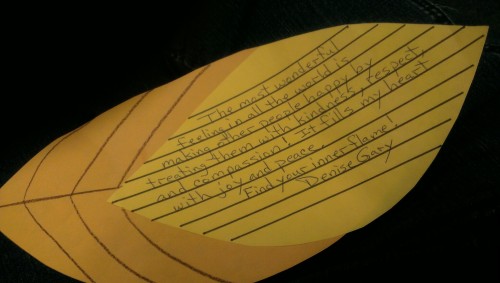 The most wonderful
feeling in all the world is
making other people happy by
treating them with kindness, respect,
and compassion! It fills my heart
with joy and peace.
Find your inner flame!
Denise Gary